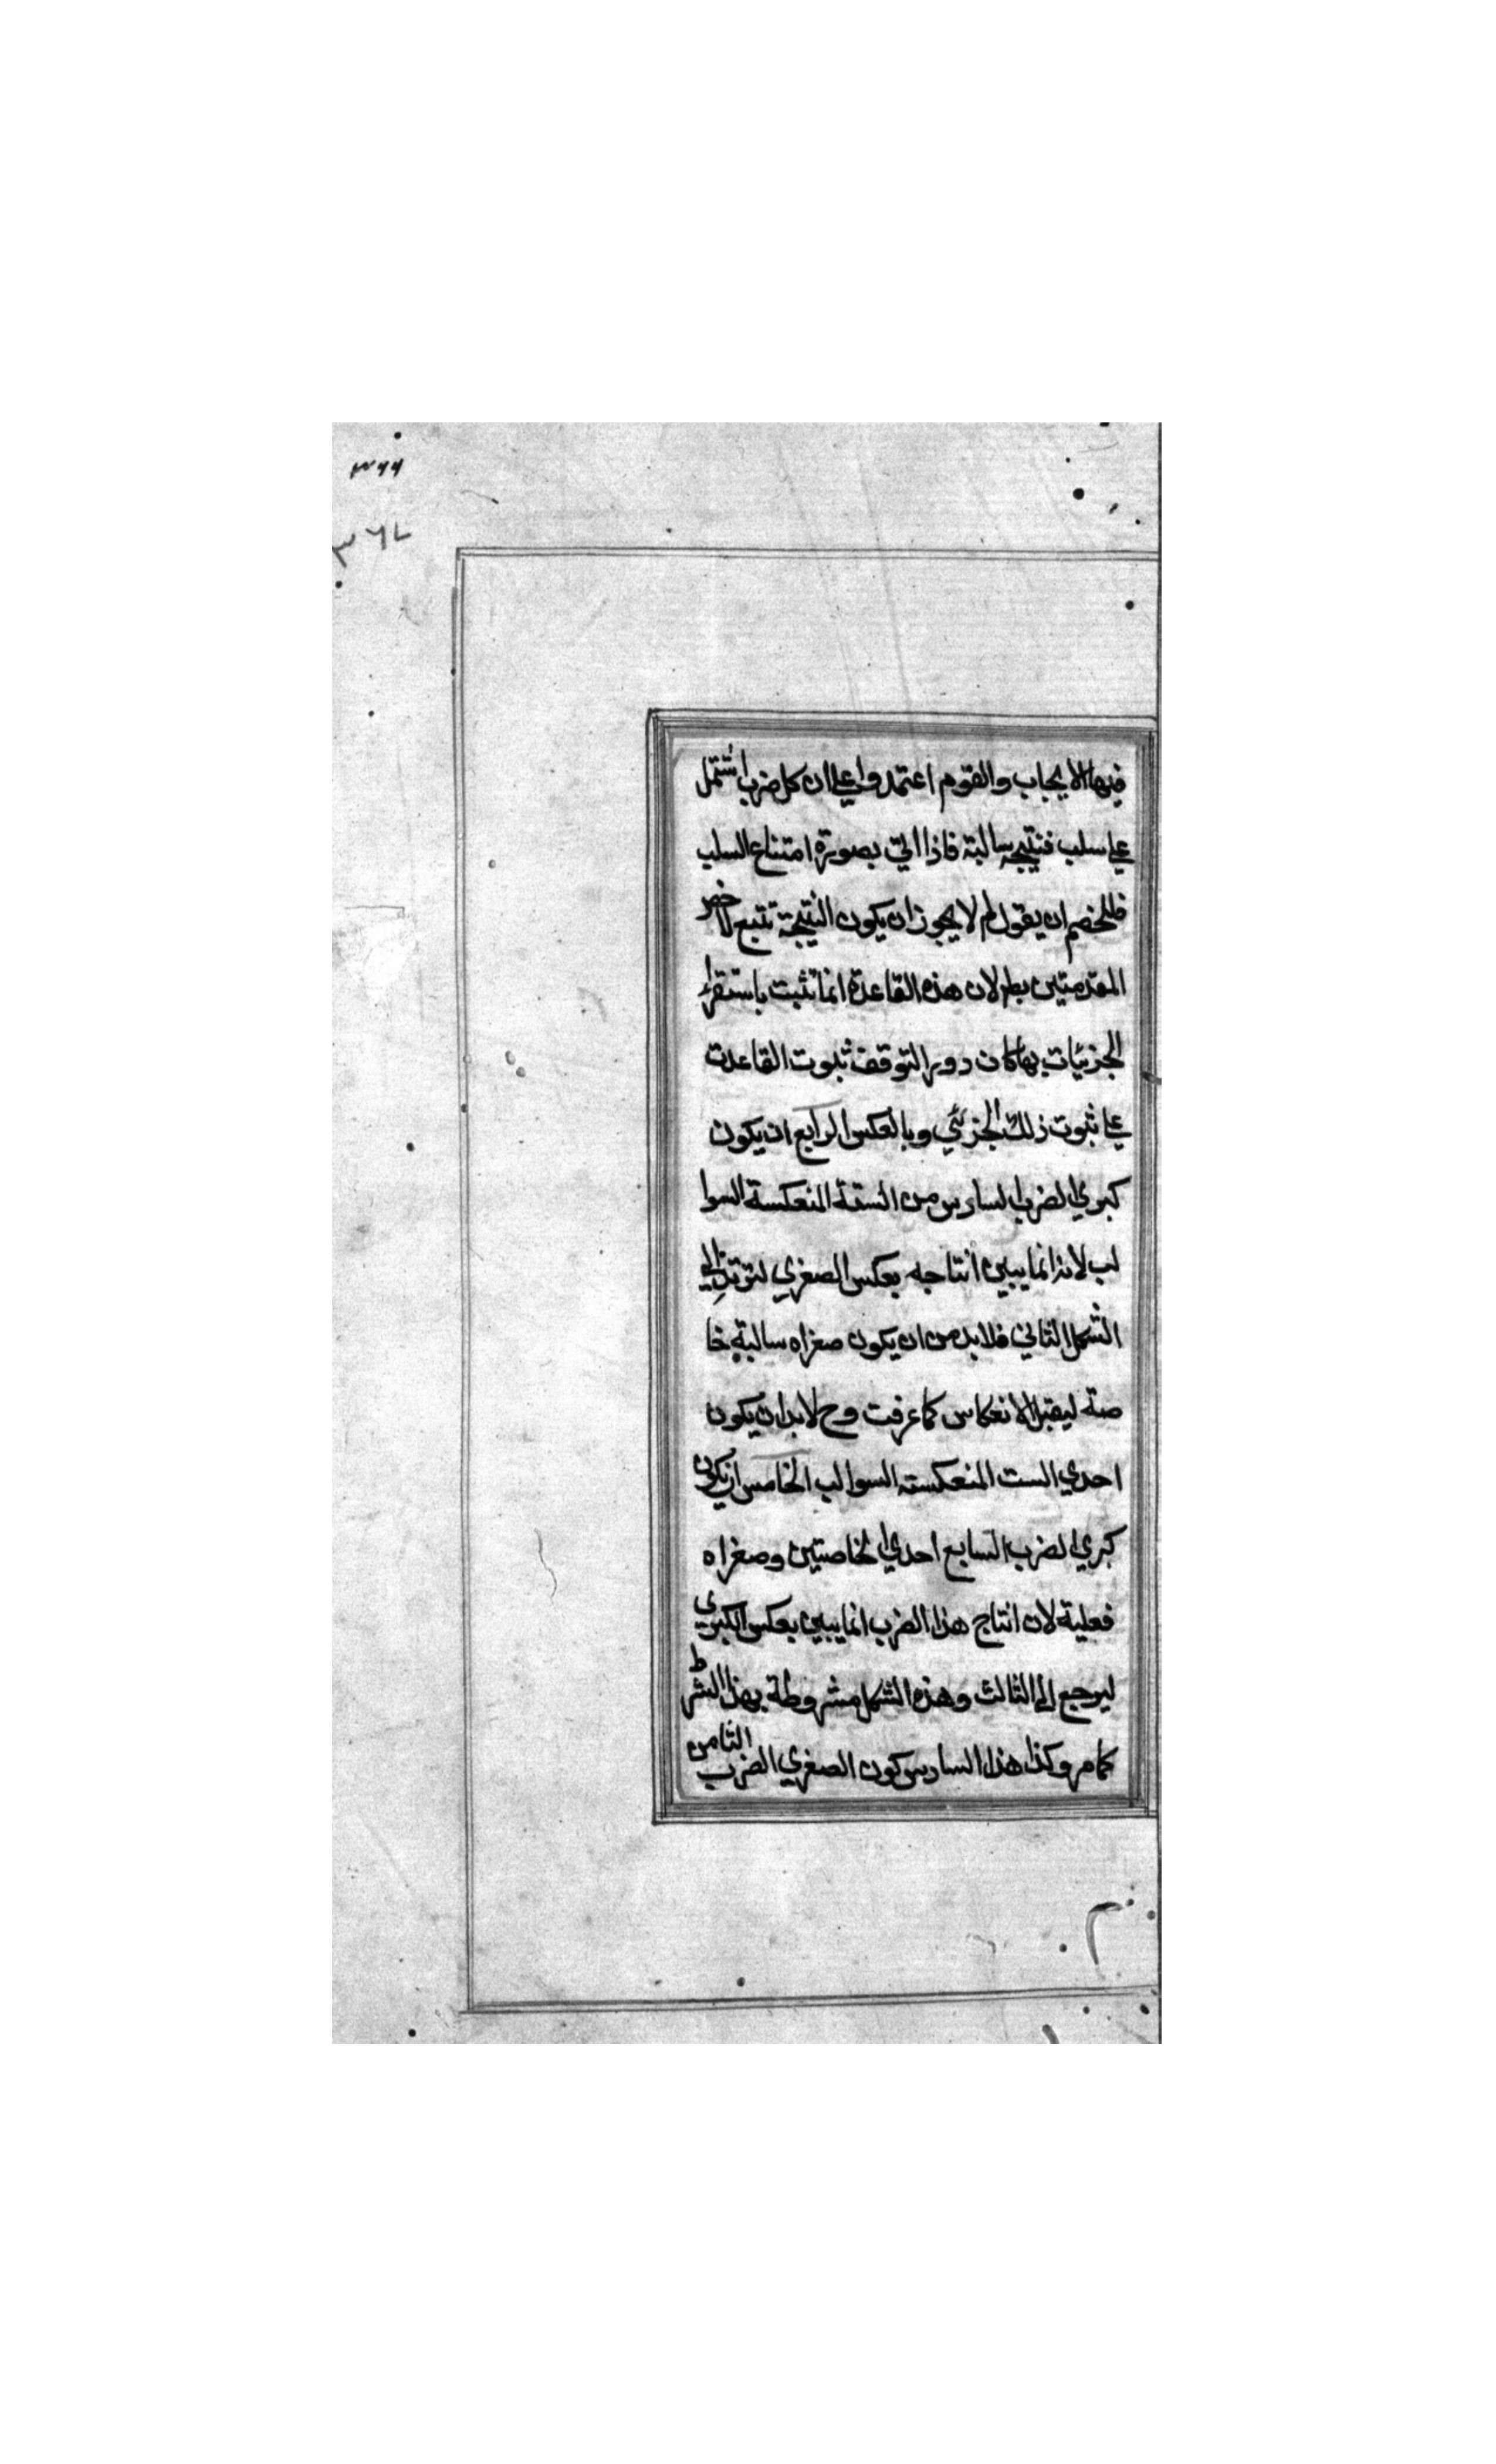 ٣٦٦
٣٦٧
فيها الايجاب والقوم اعتمدوا علي ان كل ضرب اشتمل
علي سلب فنتيجه سالبة فاذا اتي بصورة امتناع السلب
فللخصم ان يقول لم لا يجوز ان يكون النتيجة تتبع لاخس
المقدمتين بطر لان هذه القاعدة انما تثبت باستقراء
الجزئيات بها كان دور التوقف ثبوت القاعدت
علي ثبوت ذلك الجزئي وبالعكس الرابع ان يكون
كبري الضرب السادس من الستة المنعكسة السوا
لب لانه انما يبين انتاجه بعكس الصغري لترتد الي
الشكل الثاني فلا بد من ان يكون صغراه سالبة خا
صة ليقبل الانعكاس كما عرفت وح لا بد ان يكون
احدي الست المنعكسته السوالب الخامس ان يكون
كبري الضرب السابع احدي الخاصتين وصغراه
فعلية لان انتاج هذا الضرب انما يبين بعكس الكبري
ليرجع الي الثالث وهذه الشكل مشروطة بهذا الشرط
كما مر وكذا هذا السادس كون الصغري الضرب الثامن